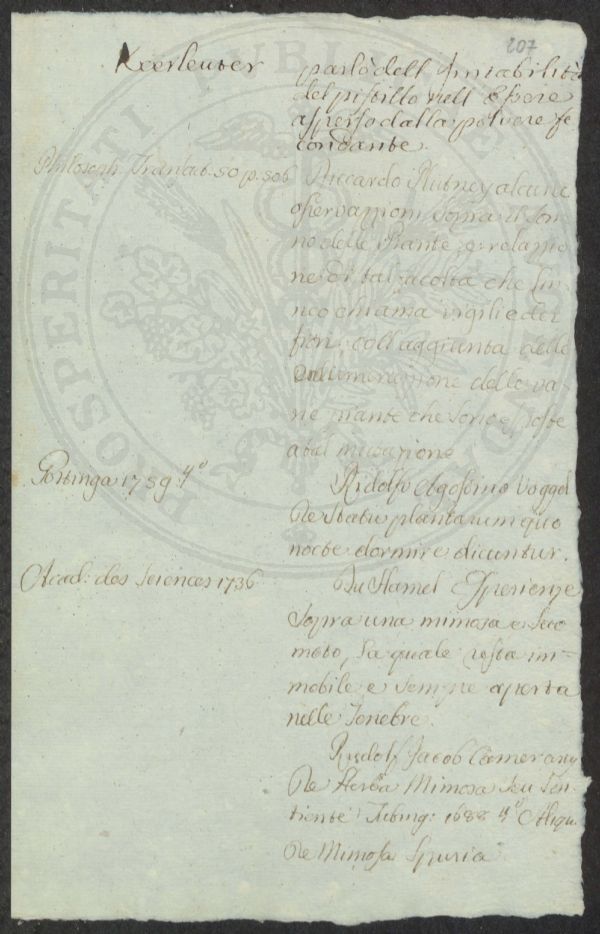 207
Keerleuter
parlò dell'Irritabilità
del pistillo nell'Essere
asperso dalla polvere fe
condante.
Philosoph. Transact. 50 p. 506
Riccardo Pulteney alcune
osservazioni sopra il son-
no delle Piante, e relazio
ne di tal facoltà che Lin-
neo chiama vigilie dei
fiori, coll'aggiunta della
Enumerazione delle va-
rie piante che sono esposte
a tal mutazione
Gottinga 1759 4º
Ridolfo Agostino Voggel
De Statu plantarum quo
nocte dormire dicuntur.
Acad: des Sciences 1736
Du Hamel Esperienze
sopra una mimosa e suo
moto, la quale resta im-
mobile e sempre aperta
nelle Tenebre.
Rudolf Jacob Camerary
De Herba Mimosa seu Sen-
tiente Tubing: 1688 4º
De Mimosa Spuria
PROSPERITATI PUBLICAE